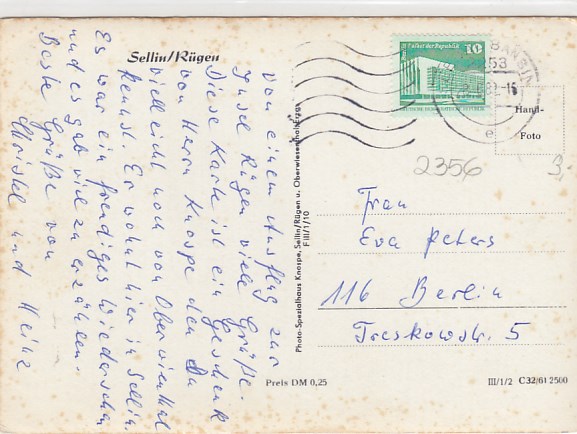 Sellin/Rügen
Von einem Ausflug zur
Insel Rügen viele Grüße.
Diese Karte ist ein Geschenk
von Herrn Knospe den Du
vielleicht noch von Oberwiesenthal
kennst. Er wohnt hier in Sellin.
Es war ein freudiges Wiedersehen
und es gab viel zu erzählen.
Beste Grüße von
und Heinz
Photo-Spezialhaus Knospe, Sellin/Rügen u. Oberwiesenthal/Erzgeb.
F III/1/10
Palast der Republik
10
DDR
BANSIN
2253
-16
e
Hand-
Foto
2356
3.-
Frau
Eva Peters
116 Berlin
Treskowstr. 5
Preis DM 0,25
III/1/2 C 32/61 2500